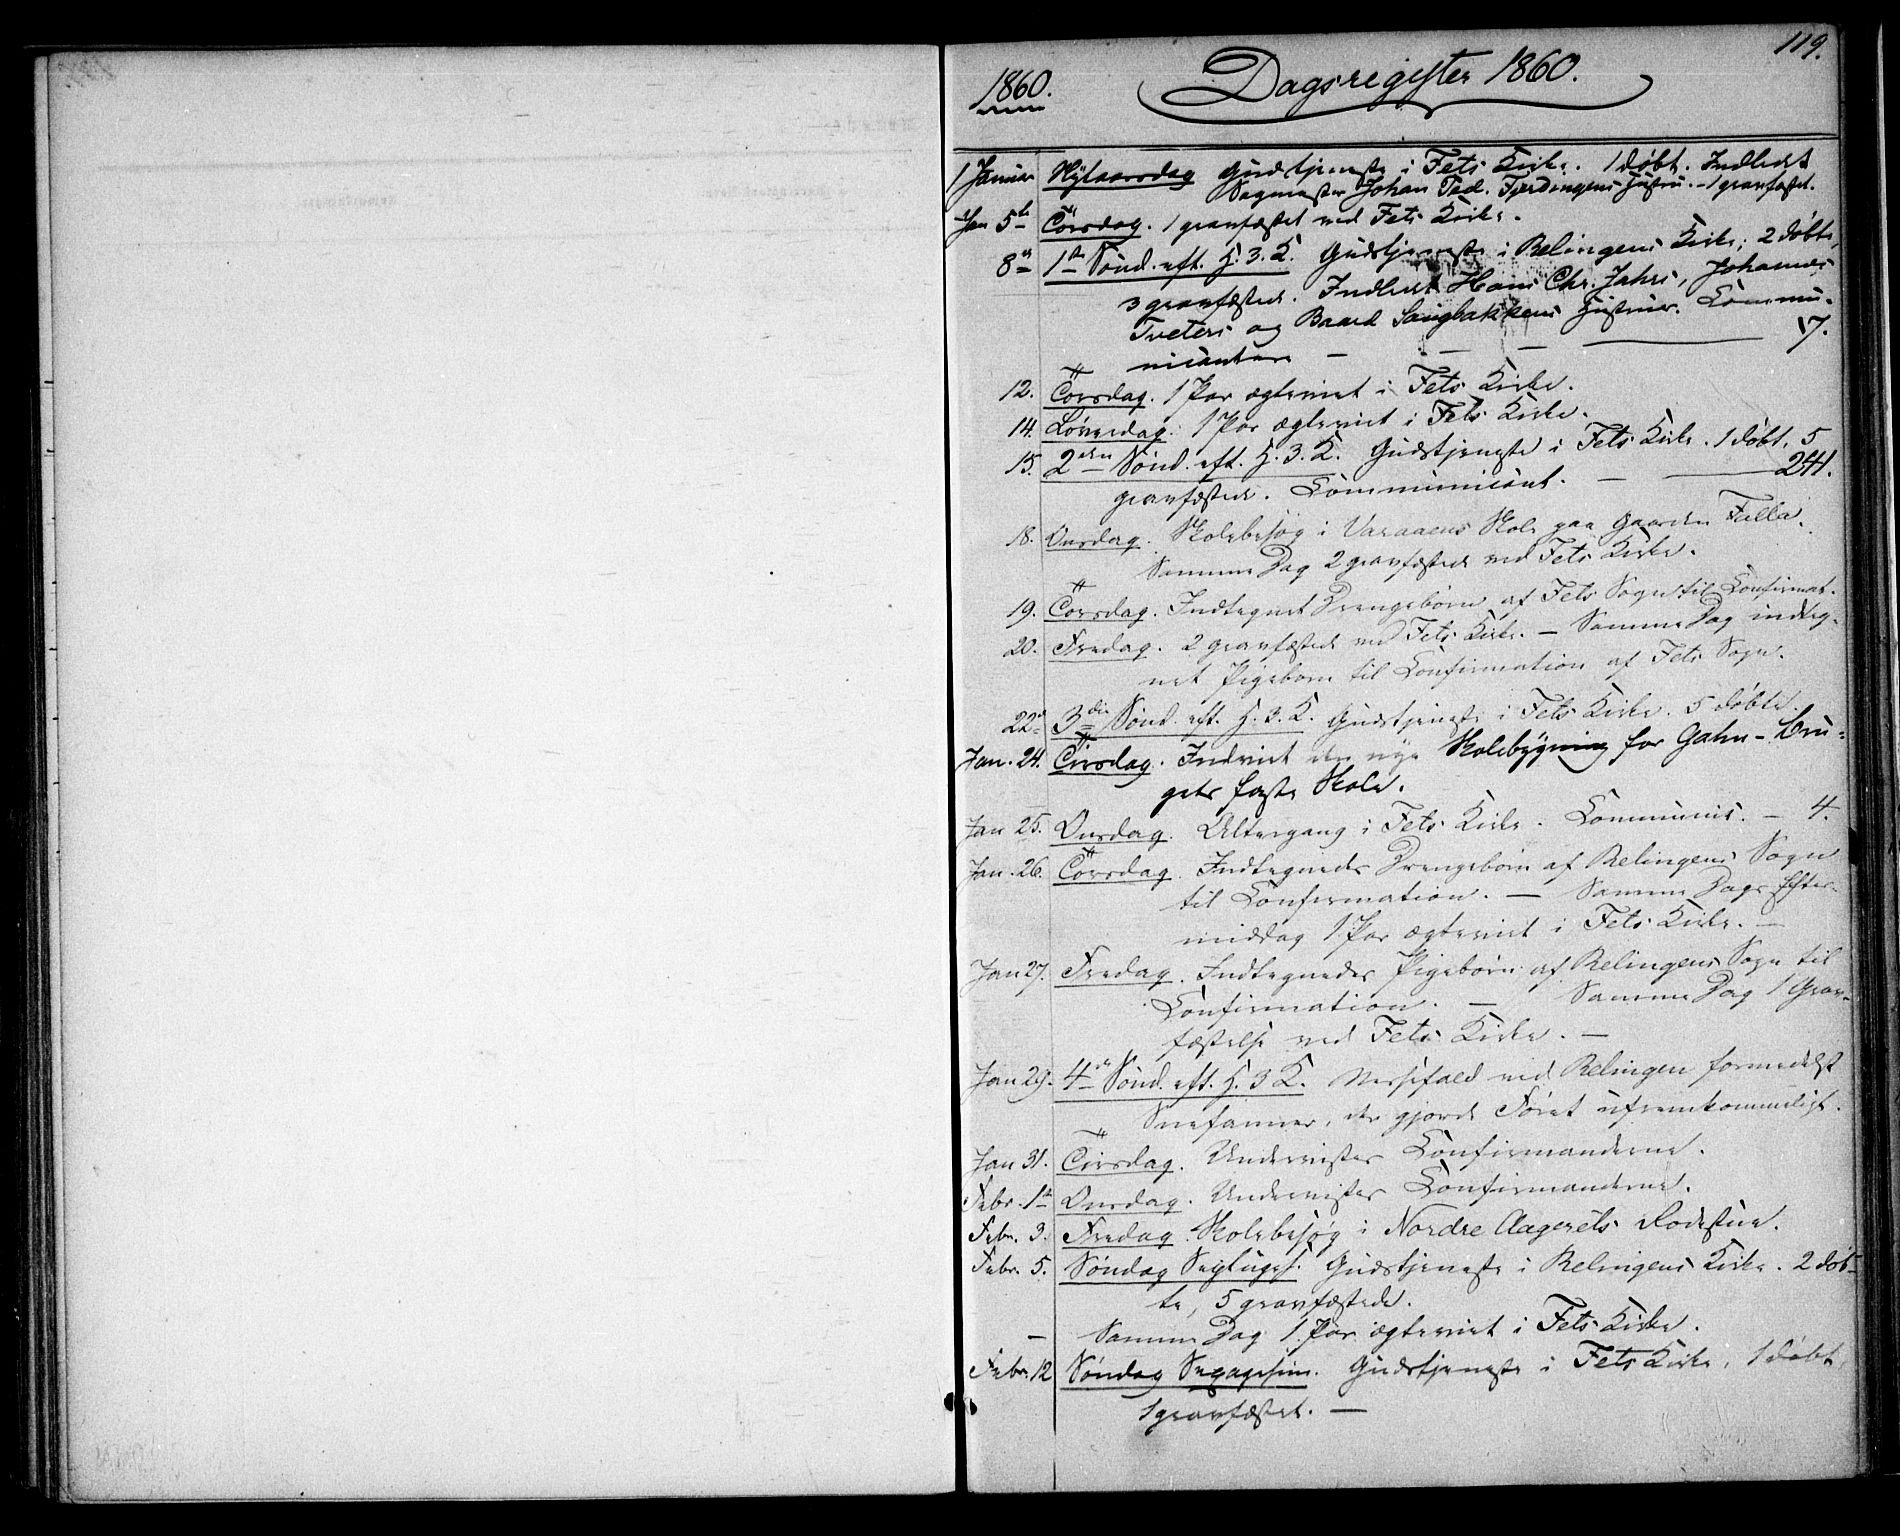 119.
1860. Dagsregister 1860.
1 Januar Nytaarsdag Gudstjeneste i Fets Kirke. 1 døbt. Indledet
Sagmester Johan Ferdingens Hustru. – 1 gravfæstet.
Jan 5te Torsdag. 1 gravfæstet ved Fets Kirke.
8de 1ste Sönd. eft. H. 3. K. Gudstjeneste i Relingens Kirke; 2 døbte,
3 gravfæstede. Indledt Hans Chr. Jahrs, Johannes
Tveters og Baard Saugbakkens Hustruer. Commu-
nicantere – – – 17.
12. Torsdag. 1 Par ægteviet i Fets Kirke.
14. Løverdag. 1 Par ægteviet i Fets Kirke.
15. 2den Sönd. eft. H. 3. K. Gudstjeneste i Fets Kirke. 1 døbt, 5
gravfæstede. Communicant. – 241.
18. Onsdag. Skolebesøg i Varaaens Skole paa Gaarden Falla.
Samme Dag 2 gravfæstede ved Fets Kirke.
19. Torsdag. Indtegnet Drengebörn af Fets Sogn til Confirmat.
20. Fredag. 2 gravfæstede ved Fets Kirke. – Samme Dag indteg-
net Pigebörn til Confirmation af Fets Sogn.
22de 3die Sönd. eft. H. 3. K. Gudstjeneste i Fets Kirke. 5 døbte.
Jan. 24. Tirsdag. Indviet den nye Skolebygning for Gahn-Bru-
gets faste Skole.
Jan 25. Onsdag. Altergang i Fets Kirke. Communic. – 4.
Jan. 26. Torsdag. Indtegnedes Drengebörn af Relingens Sogn
til Confirmation. – Samme Dags Efter-
middag 1 Par ægteviet i Fets Kirke. –
Jan 27. Fredag. Indtegnedes Pigebörn af Relingens Sogn til
Confirmation. – Samme Dag 1 Grav-
fæstelse ved Fets Kirke. –
Jan 29. 4de Sönd. eft. H. 3 K. Messefald ved Relingen formedelst
Snefanner, der gjorde Föret ufremkommeligt.
Jan 31. Tirsdag. Undervistes Confirmanderne.
Febr. 1ste Onsdag. Undervistes Confirmanderne.
Febr. 3. Fredag. Skolebesøg i Nordre Aagerets Rodestue.
Febr. 5. Söndag Septuages. Gudstjeneste i Relingens Kirke. 2 döb-
te, 5 gravfæstede.
– Samme Dag 1 Par ægteviet i Fets Kirke.
Febr. 12 Söndag Sexagesim. Gudstjeneste i Fets Kirke, 1 døbt,
1 gravfæstet. –